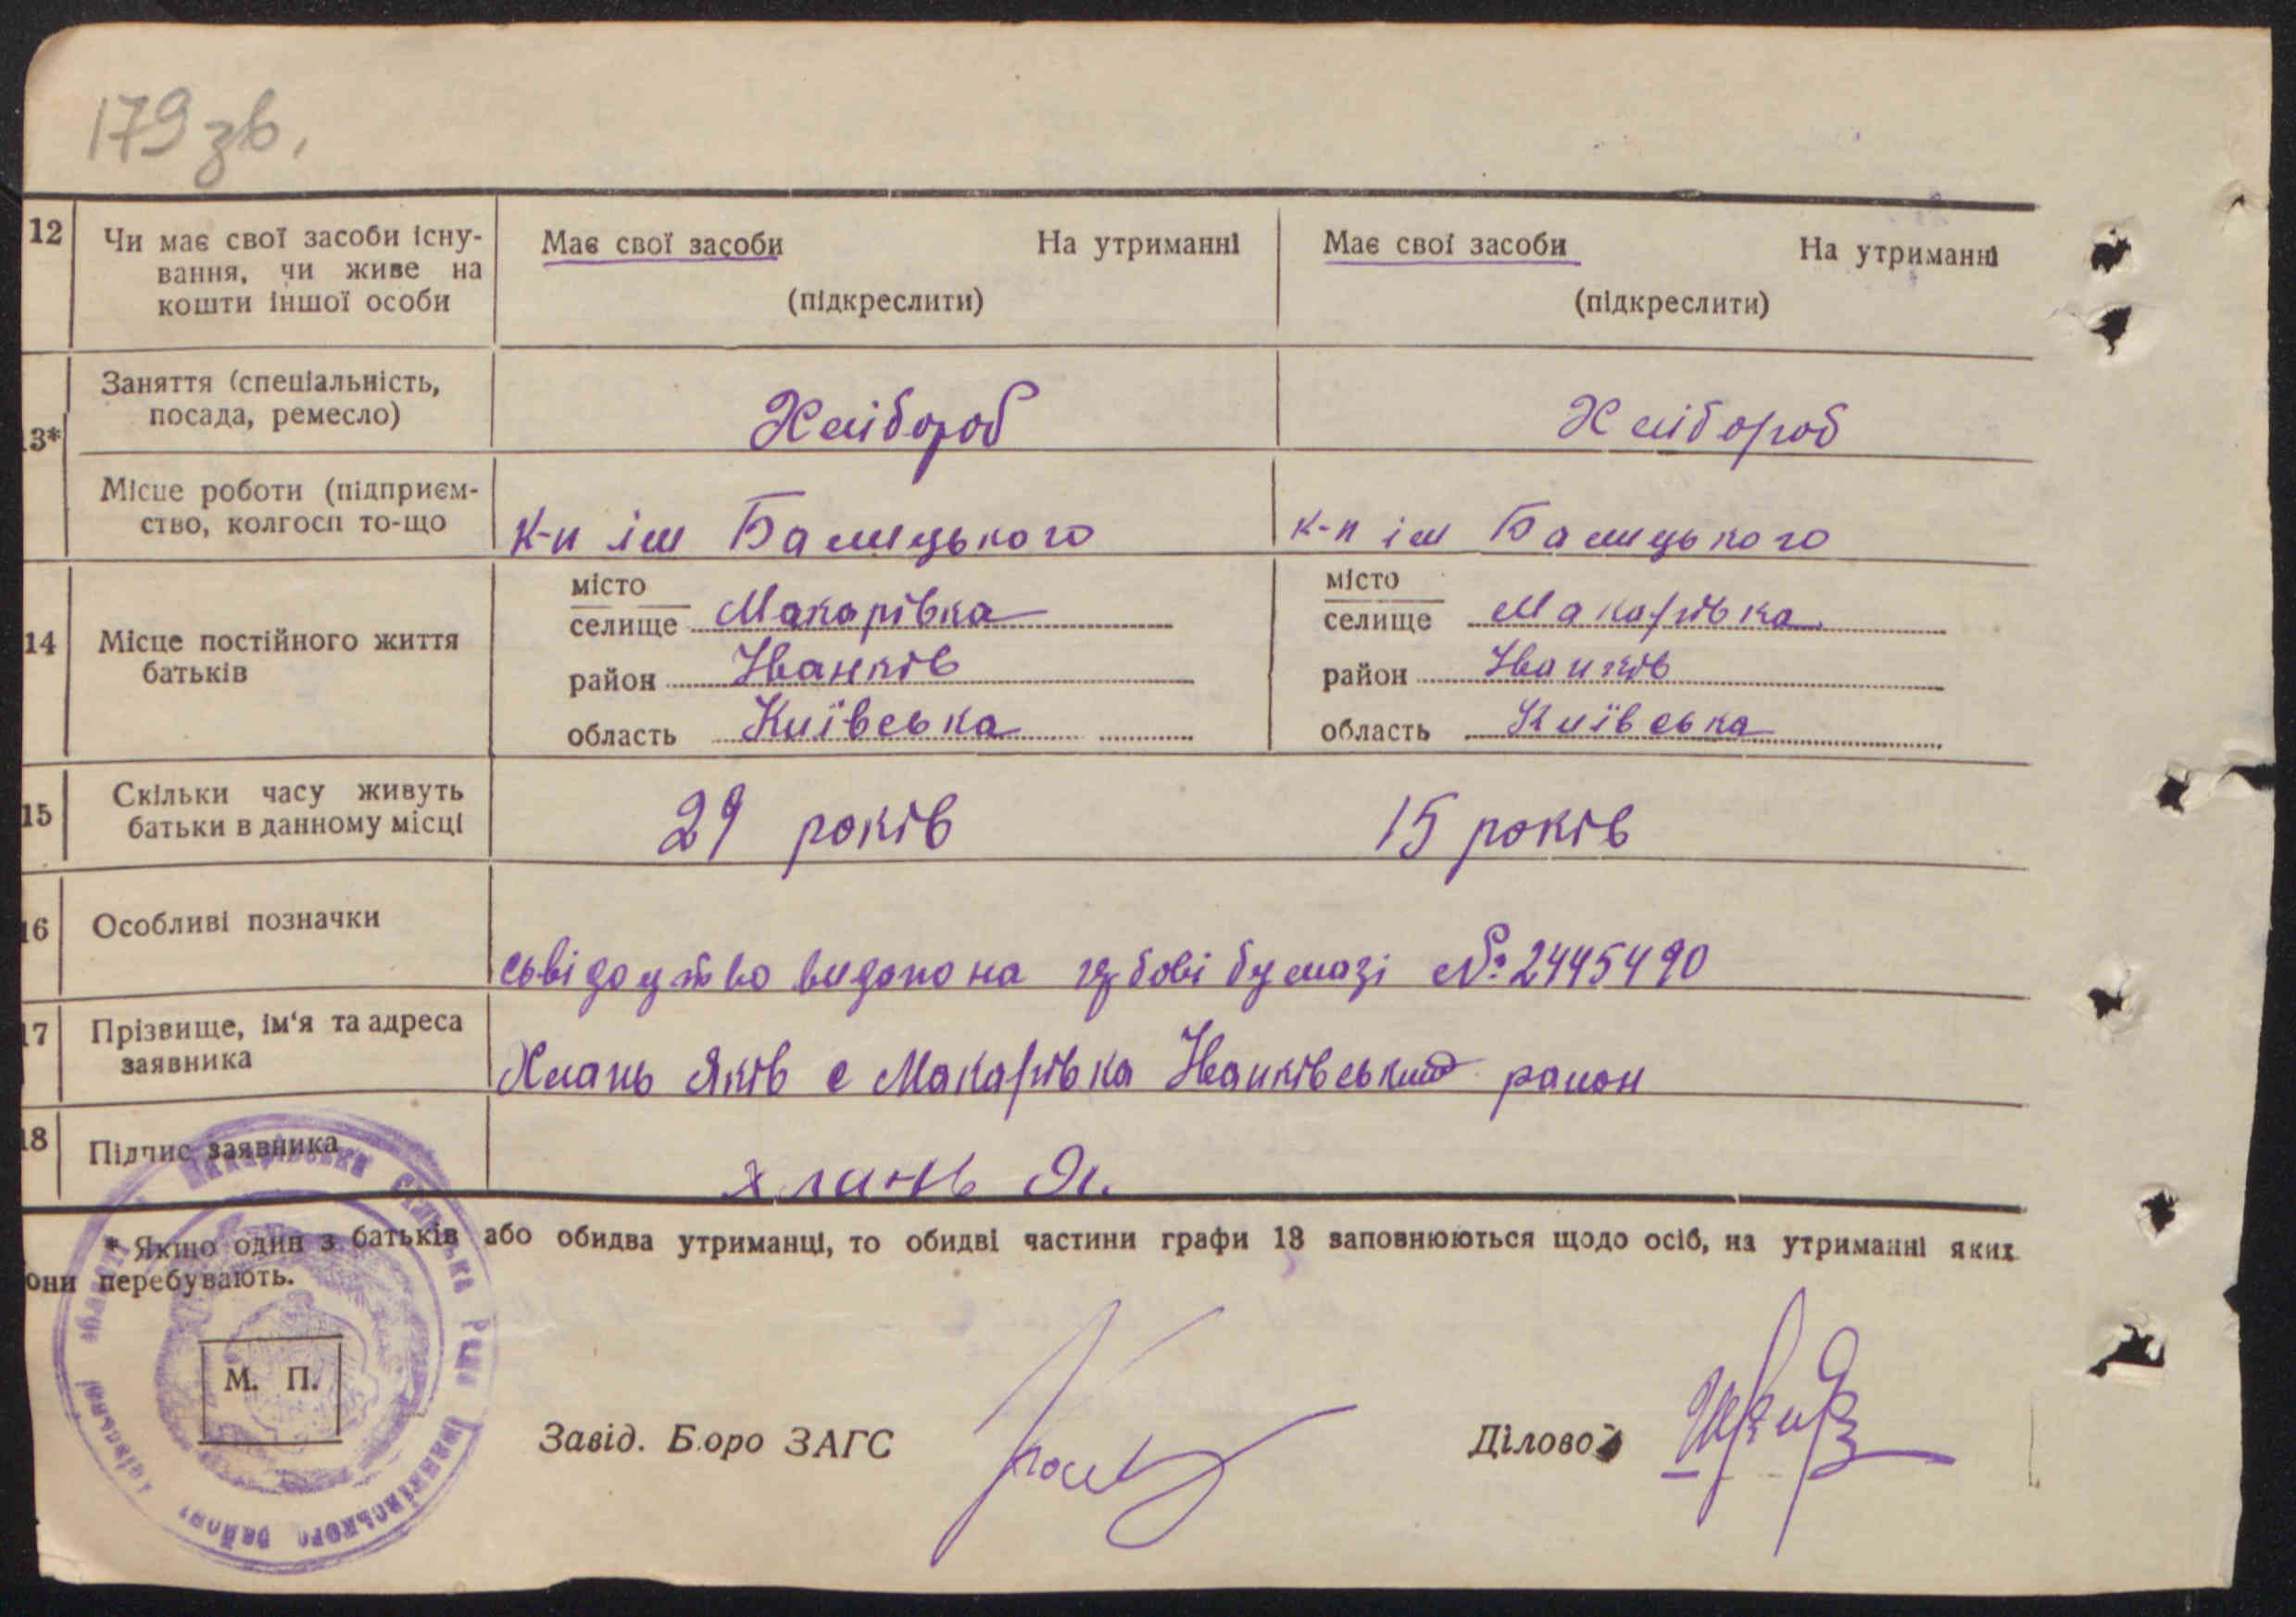 179 зв.
12 Чи має свої засоби існу-
вання, чи живе на
кошти іншої особи
Має свої засоби На утриманні
(підкреслити)
Має свої засоби На утриманні
(підкреслити)
13* Заняття (спеціальність,
посада, ремесло)
Хлібороб
Хлібороб
Місце роботи (підприєм-
ство, колгосп то-що
к-п ім Балицького
к-п ім Балицького
14 Місце постійного життя
батьків
місто
селище Макарівка
район Іванків
область Київська
місто
селище Макарівка
район Іванків
область Київська
15 Скільки часу живуть
батьки в данному місці
29 років
15 років
16 Особливі позначки
свідоцтво видано на гербові бумазі № 2445490
17 Прізвище, ім'я та адреса
заявника
Хлань Яків с Макарівка Іванківський район
18 Підпис заявника
хлань Я.
* Якщо один з батьків або обидва утриманці, то обидві частини графи 13 заповнюються щодо осіб, на утриманні яких
они перебувають.
М. П.
Макарівська Сільська Рада Іванківського району
Завід. Бюро ЗАГС
Діловод